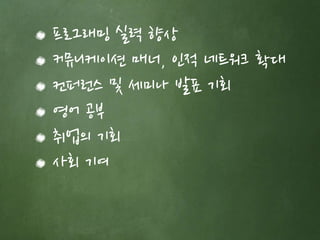 프로그래밍 실력 향상
커뮤니케이션 매너, 인적 네트워크 확대
컨퍼런스 및 세미나 발표 기회
영어 공부
취업의 기회
사회 기여